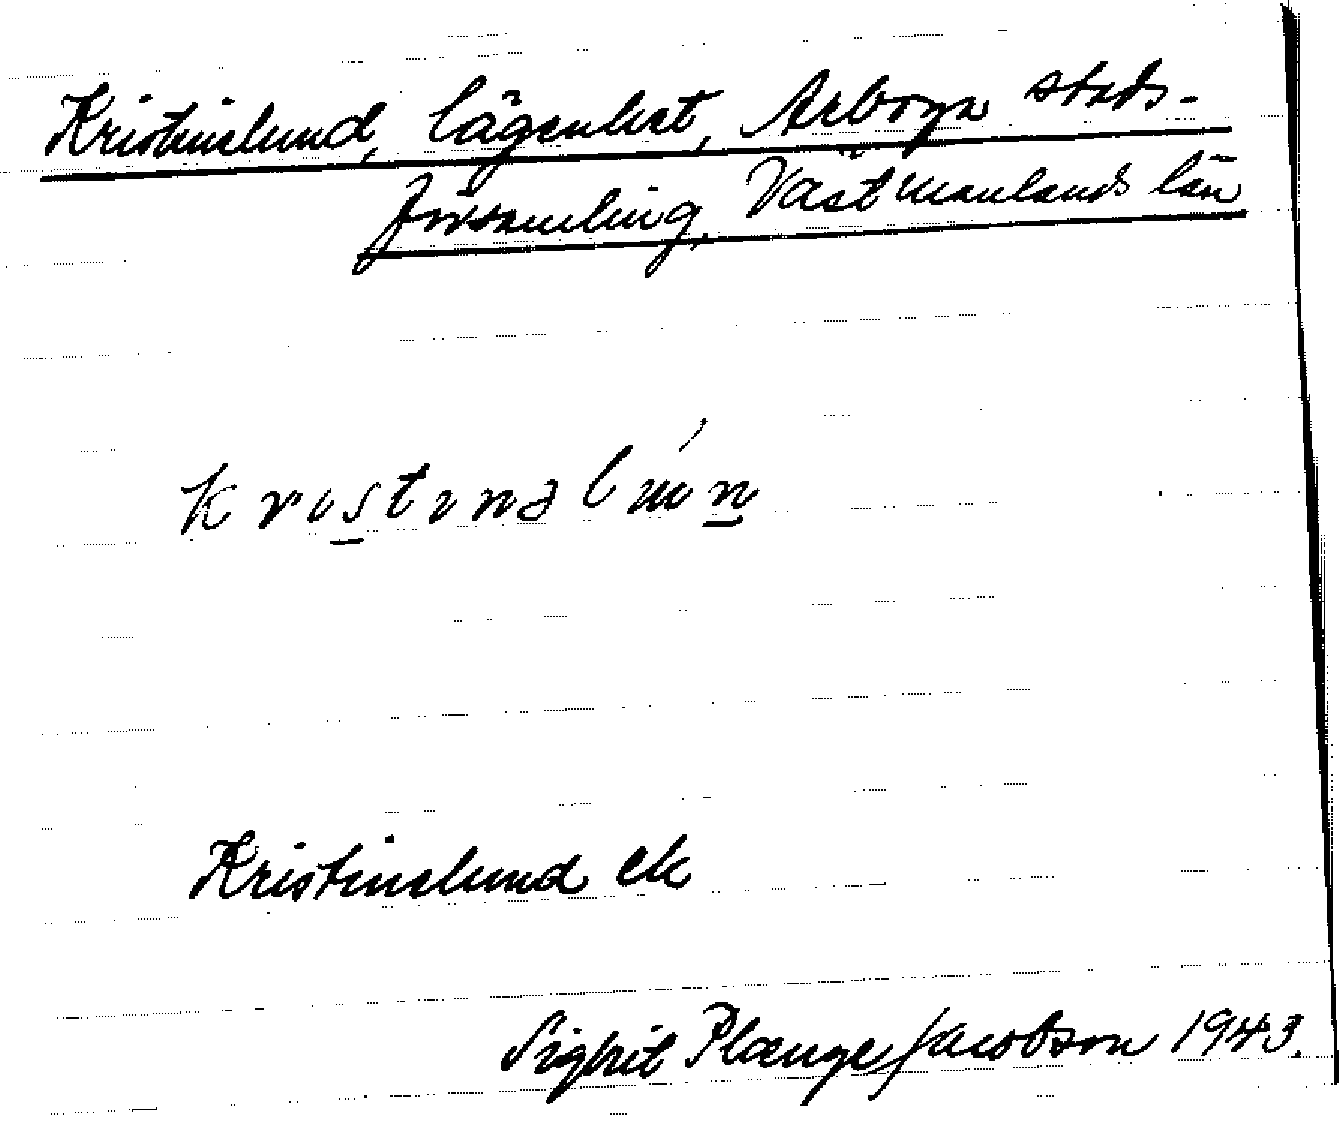 Kristinelund, lägenhet, Arboga stads-
församling, Västmanlands län
Kristinelund ek
Sigrid Plænge Jacobson 1943.